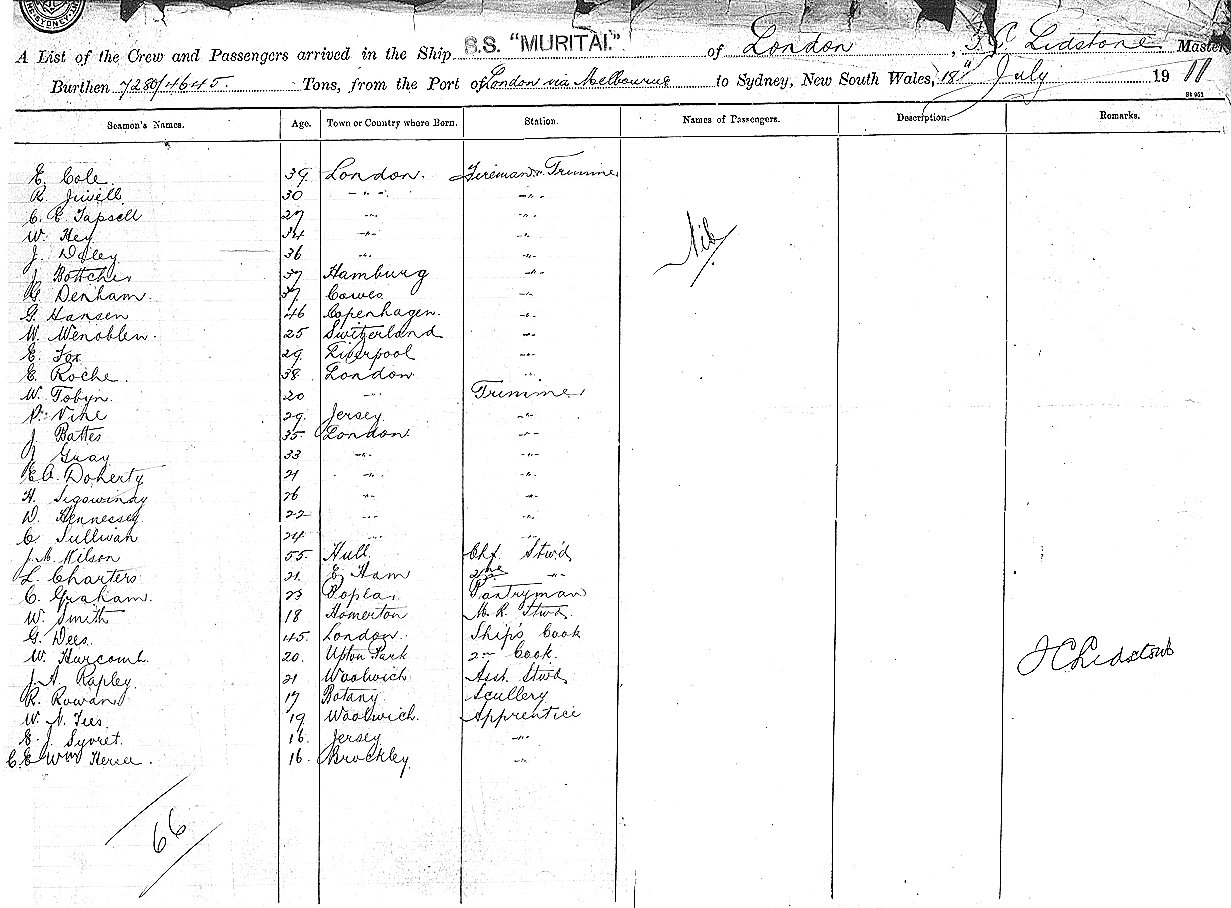 A List of the Crew and Passengers arrived in the Ship S.S. "MURITAI." of London, Lidstone Master
Burthen 7280/4645. Tons, from the Port of London via Melbourne to Sydney, New South Wales, 18th July 1911
Seamen's Names. Age. Town or Country where Born. Station. Names of Passengers. Description. Remarks.
E. Cole. 39 London. Fireman & Trimmer
R. Jewell 30 -"- -"-
C. E. Tapsell 27 -"- -"-
W. Hey 34 -"- -"-
J. Daley 36 -"- -"-
J. Bottcher 37 Hamburg -"-
G. Denham. 37 Cowes -"-
G. Hansen 46 Copenhagen. -"-
W. Wenoblen. 25 Switzerland -"-
E. Fox 29 Liverpool -"-
E. Roche. 38 London -"-
W. Tobyn. 20 -"- Trimmer
Vine 29 Jersey -"-
J. Battes 35 London. -"-
Guay 33 -"- -"-
E.A. Doherty 21 -"- -"-
H. 26 -"- -"-
D. Hennessey. 22 -"- -"-
C. Sullivan 24 -"- -"-
Wilson 55 Hull Chf. Stw'd
L. Charters 21 E. Ham 2nd -"-
C. Graham. 23 Poplar Pantryman
W. Smith 18 Homerton M. R. Stwd.
G. Dees. 45 London. Ship's Cook
W. Harcomb. 20. Upton Park 2nd Cook.
J. A. Rapley. 21 Woolwich Asst. Stwd
R. Rowan 17 Botany Scullery
W. N. Tees. 19 Woolwich. Apprentice
E. J. Syvret. 16 Jersey -"-
C. E. Wm 16. Brockley -"-
Nil
J C Lidstone
66